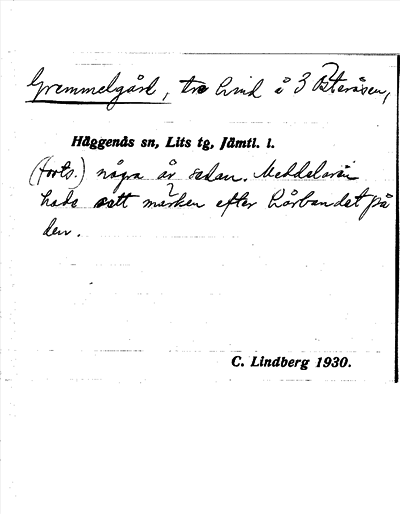 Gremmelgård, tre hind å 3 Österåsen,
Häggenås sn, Lits tg, Jämtl. l.
(forts.) några år sedan. Meddelaren
hade sett märken efter hårbandet på
den.
C. Lindberg 1930.